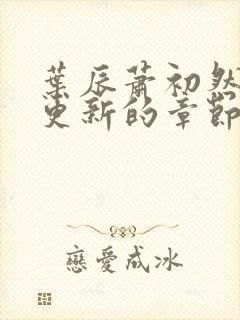 葉辰蕭初然
更新的章節
戀愛成冰